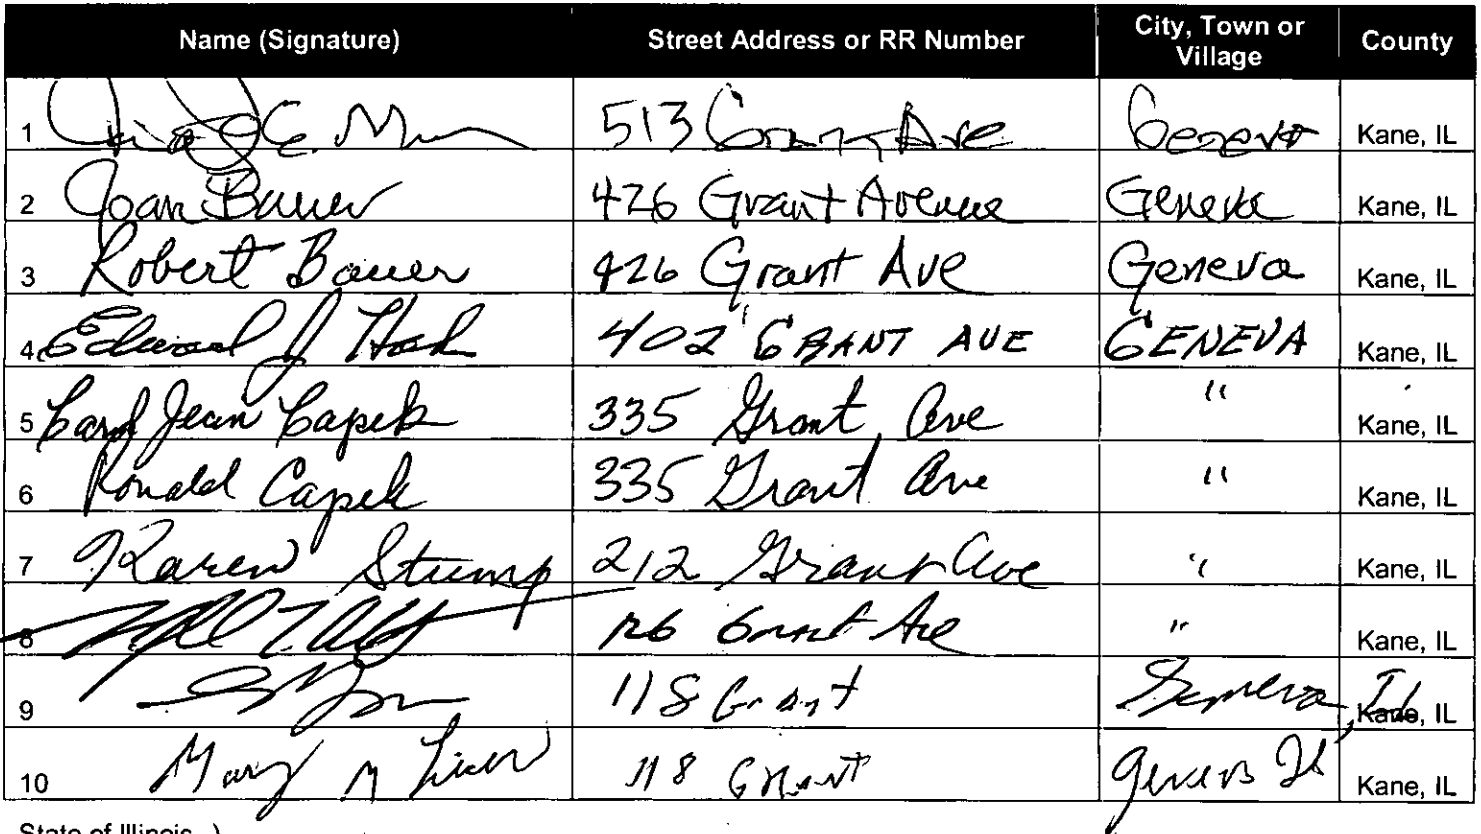 Name (Signature) Street Address or RR Number City, Town or Village County
1 513 Grant Ave Geneva Kane, IL
2 Joan Bauer 426 Grant Avenue Geneva Kane, IL
3 Robert Bauer 426 Grant Ave Geneva Kane, IL
4 Edward J 402 GRANT AVE GENEVA Kane, IL
5 Jean Capek 335 Grant Ave " Kane, IL
6 Ronald Capek 335 Grant Ave " Kane, IL
7 Karen Stump 212 Grant Ave " Kane, IL
8 126 Grant Ave " Kane, IL
9 118 Grant Geneva, Il Kane, IL
10 Mary M 118 Grant Geneva Il Kane, IL
State of Illinois )